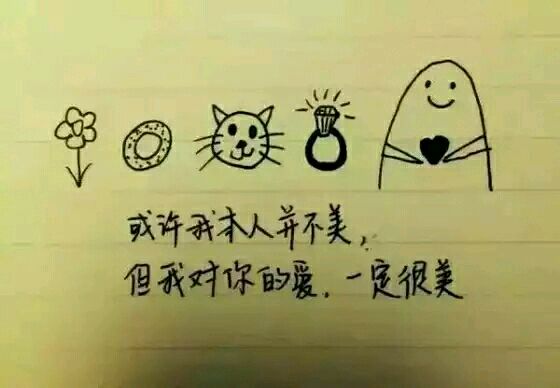 或许我本人并不美，
但我对你的爱，一定很美